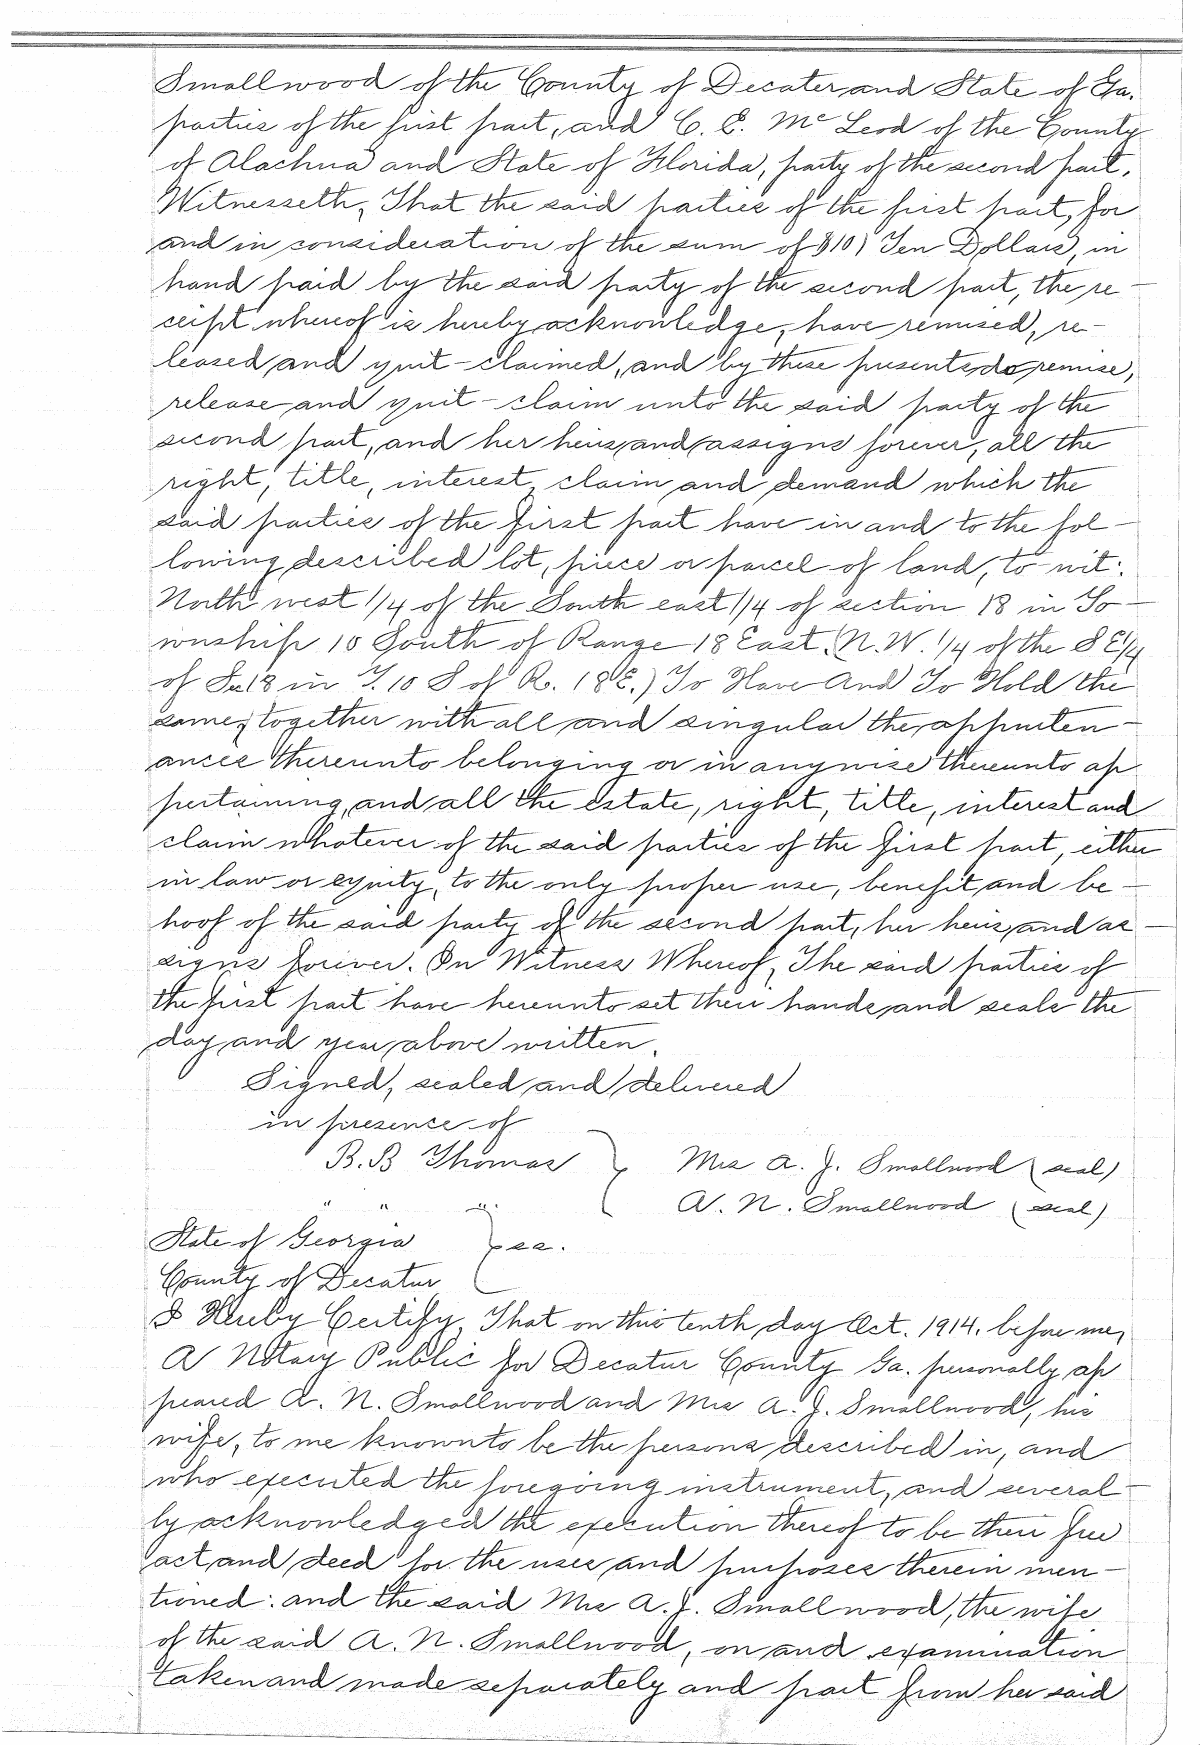 Smallwood of the County of Decater and State of Ga.
parties of the first part, and C. E. Mc Leod of the County
of Alachua and State of Florida, party of the second part,
Witnesseth, That the said parties of the first part, for
and in consideration of the sum of $10) Ten Dollars, in
hand paid by the said party of the second part, the re-
ceipt whereof is hereby acknowledge, have remised, re-
leased and quit-claimed, and by these presents do remise,
release and quit-claim unto the said party of the
second part, and her heirs and assigns forever, all the
right, title, interest, claim and demand which the
said parties of the first part have in and to the fol-
lowing described lot, piece or parcel of land, to wit:
North west 1/4 of the South east 1/4 of section 18 in To-
wnship 10 South of Range 18 East. (N.W. 1/4 of the S E 1/4
of Se 18 in T. 10 S of R. 18 E.) To Have And To Hold the
same, together with all and singular the appurten-
ances thereunto belonging or in anywise thereunto ap
pertaining, and all the estate, right, title, interest and
claim whatever of the said parties of the first part, either
in law or equity, to the only proper use, benefit and be-
hoof of the said party of the second part, her heirs and as-
signs forever. In Witness Whereof, The said parties of
the first part have hereunto set their hands and seals the
day and year above written.
Signed, sealed and delivered
in presence of
B. B Thomas } Mrs A. J. Smallwood (seal)
" " " A. N. Smallwood (seal)
State of Georgia } ss.
County of Decatur
I Hereby Certify, That on this tenth day Oct. 1914. before me,
A Notary Public for Decatur County Ga. personally ap
peared A. N. Smallwood and Mrs A. J. Smallwood, his
wife, to me known to be the persons described in, and
who executed the foregoing instrument, and several-
ly acknowledged the execution thereof to be their free
act and deed for the uses and purposes therein men-
tioned: and the said Mrs A. J. Smallwood, the wife
of the said A. N. Smallwood, on and examination
taken and made separately and part from her said